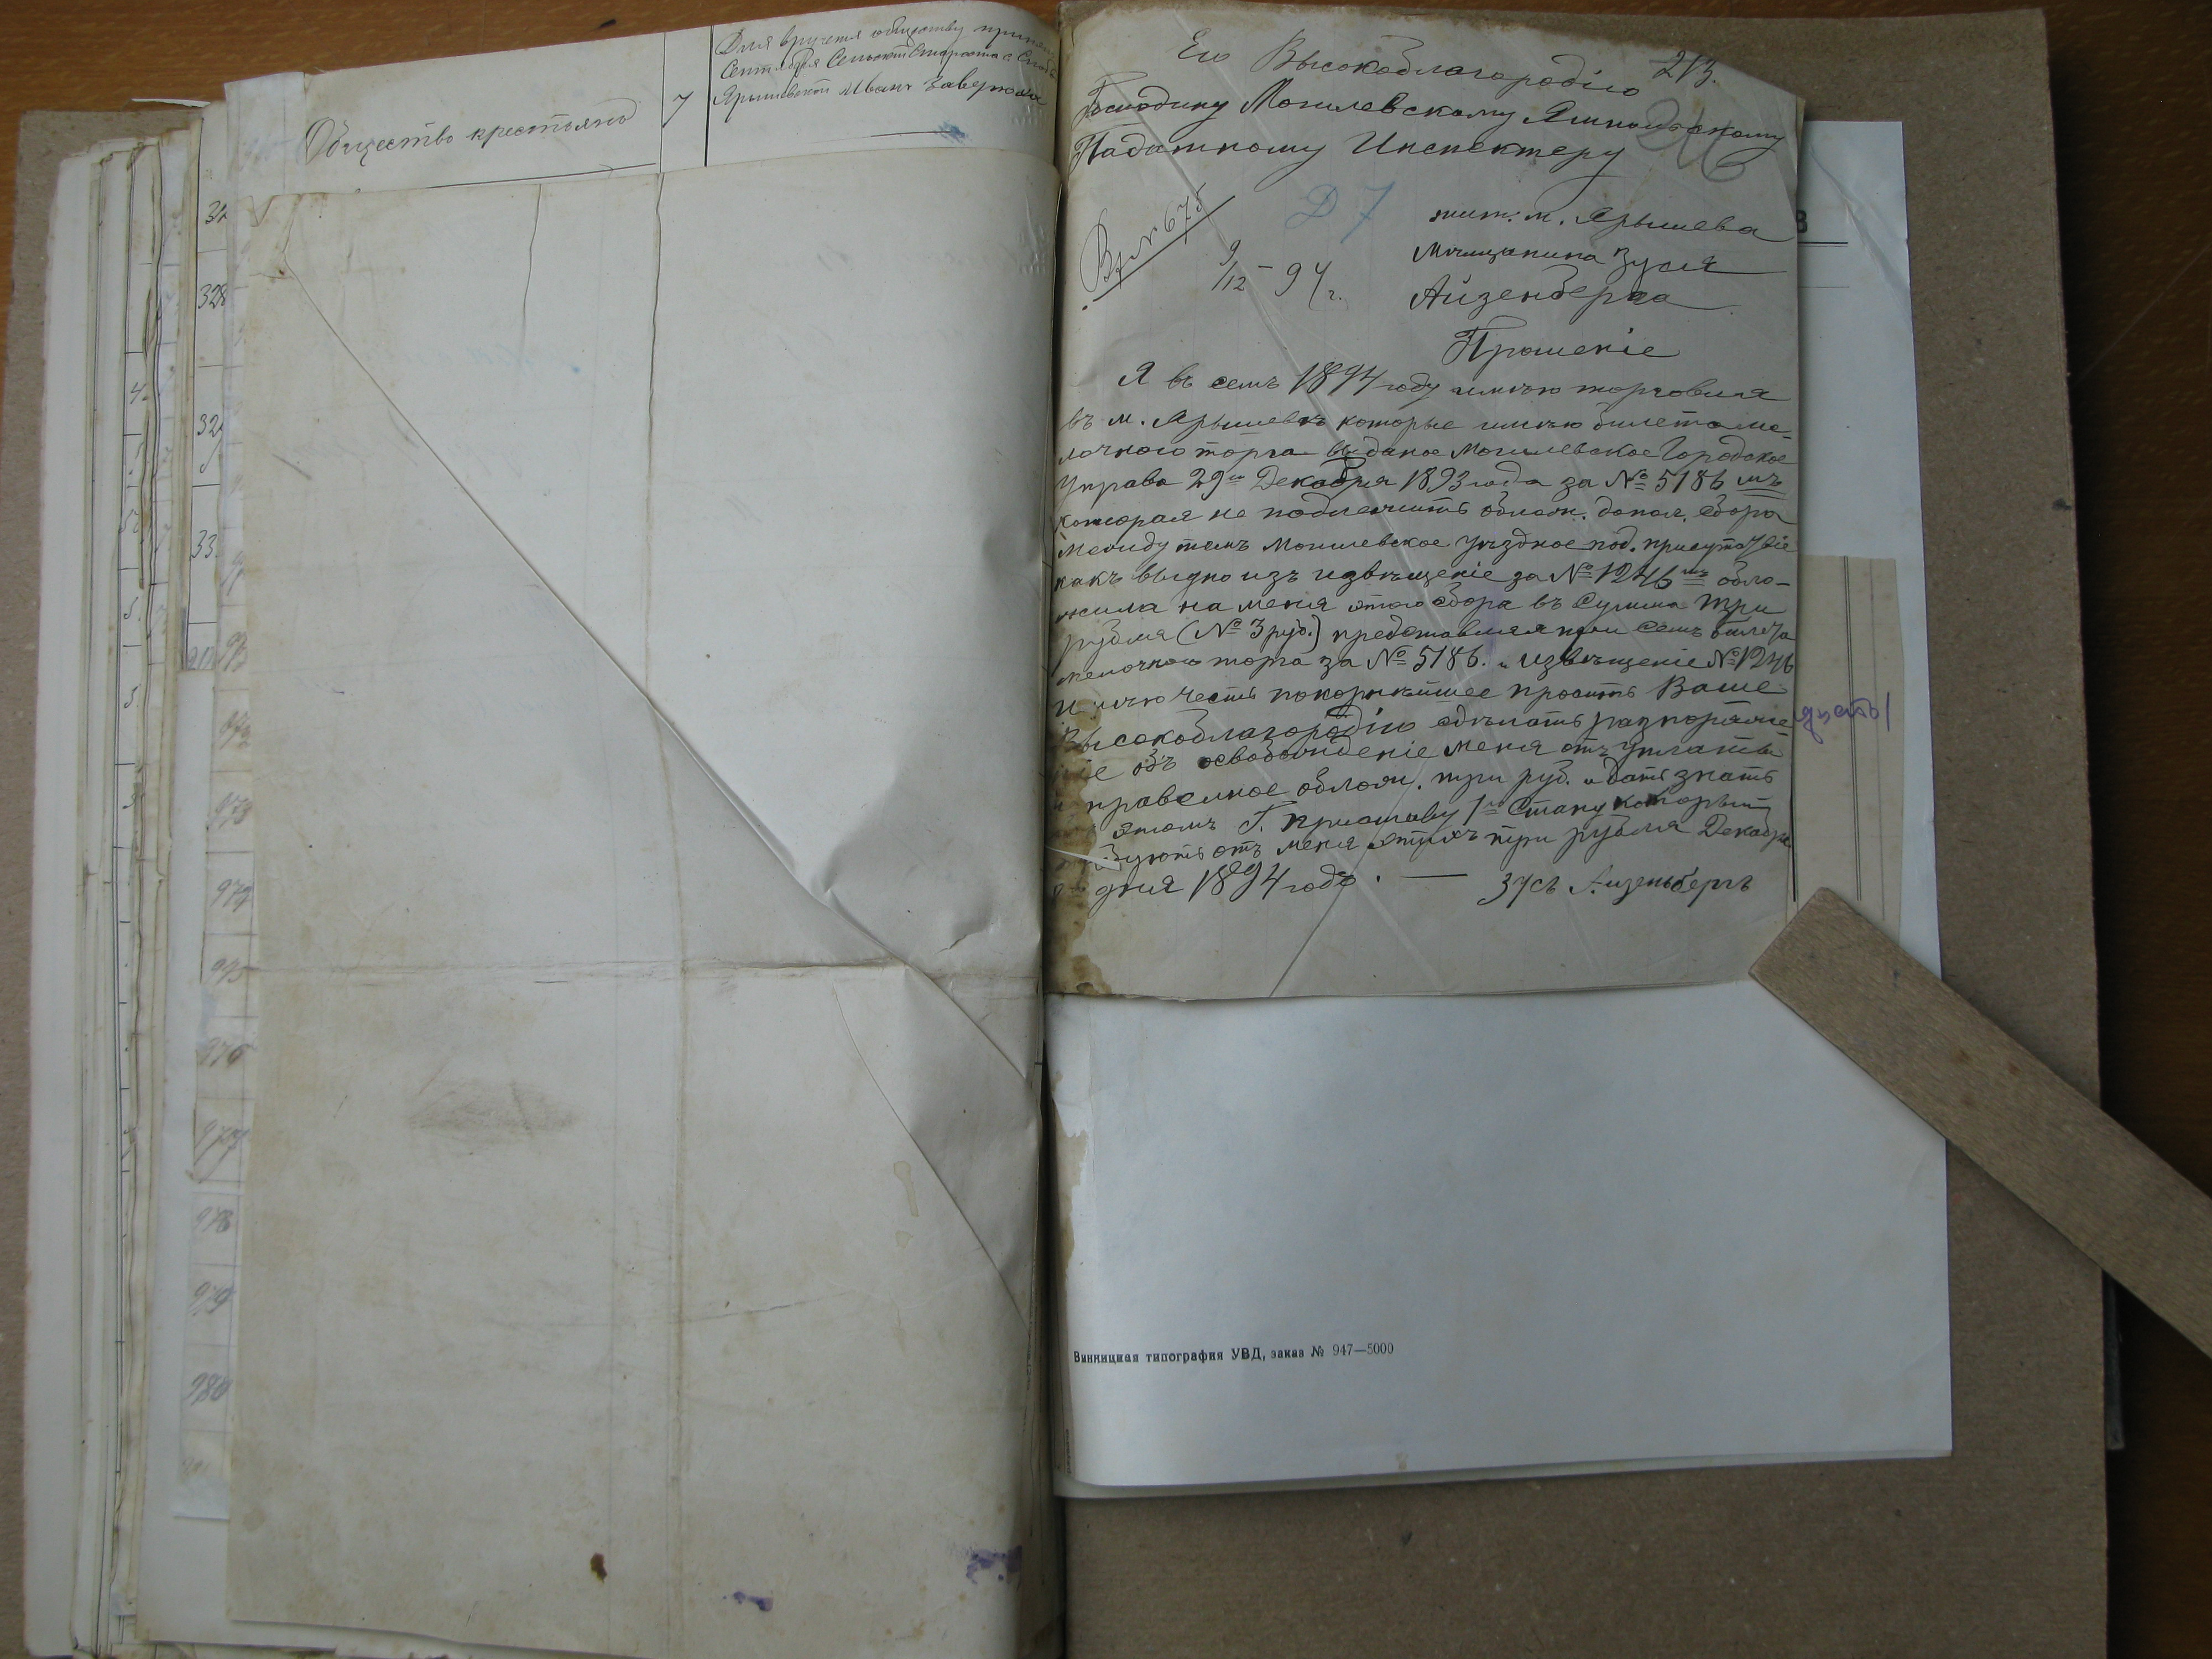 Для вручения обществу принялъ
Сентября Сельскій Староста с. Слобо
Ярышевской Иванъ Заверюха
Общество крестьянъ
7
Его Высокоблагородію
213.
Господину Могилевскому Ямпольскому
Падатному Инспектеру
Вх № 675
9/12 – 94 г.
Д 7
жит: м. Ярышева
Мѣщанина Зуся
Айзенберга
Прошеніе
Я въ семъ 1894 году имѣю торговля
въ м. Ярышевѣ которые имѣю билета ме-
лочного торга выданое Могилевское Городское
Управа 29го Декабря 1893 года за № 5186 мъ
которая не подлежитъ облож. допол. сбора
Между темъ Могилевское уѣздное под. присутствіе
какъ выдно изъ извѣщеніе за № 1246 мъ обло-
жила на меня этого сбора въ Сумма три
рубля (№ 3 руб.) представляя при семъ билета
мелочного торга за № 5186. и извѣщеніе № 1246
имѣю честь покорнѣйшее просить Ваше
Высокоблагородію сдѣлать разпоряже
ніе объ освобожденіе меня отъ уплаты
правелное облож. три руб. и дать знать
этомъ Г. Приставу 1го Стану который
отъ меня этихъ три рубля Декабря
дня 1894 года. — Зусь Айзенбергъ
328
33
973
974
975
976
977
978
979
980
Винницкая типография УВД, заказ № 947—5000